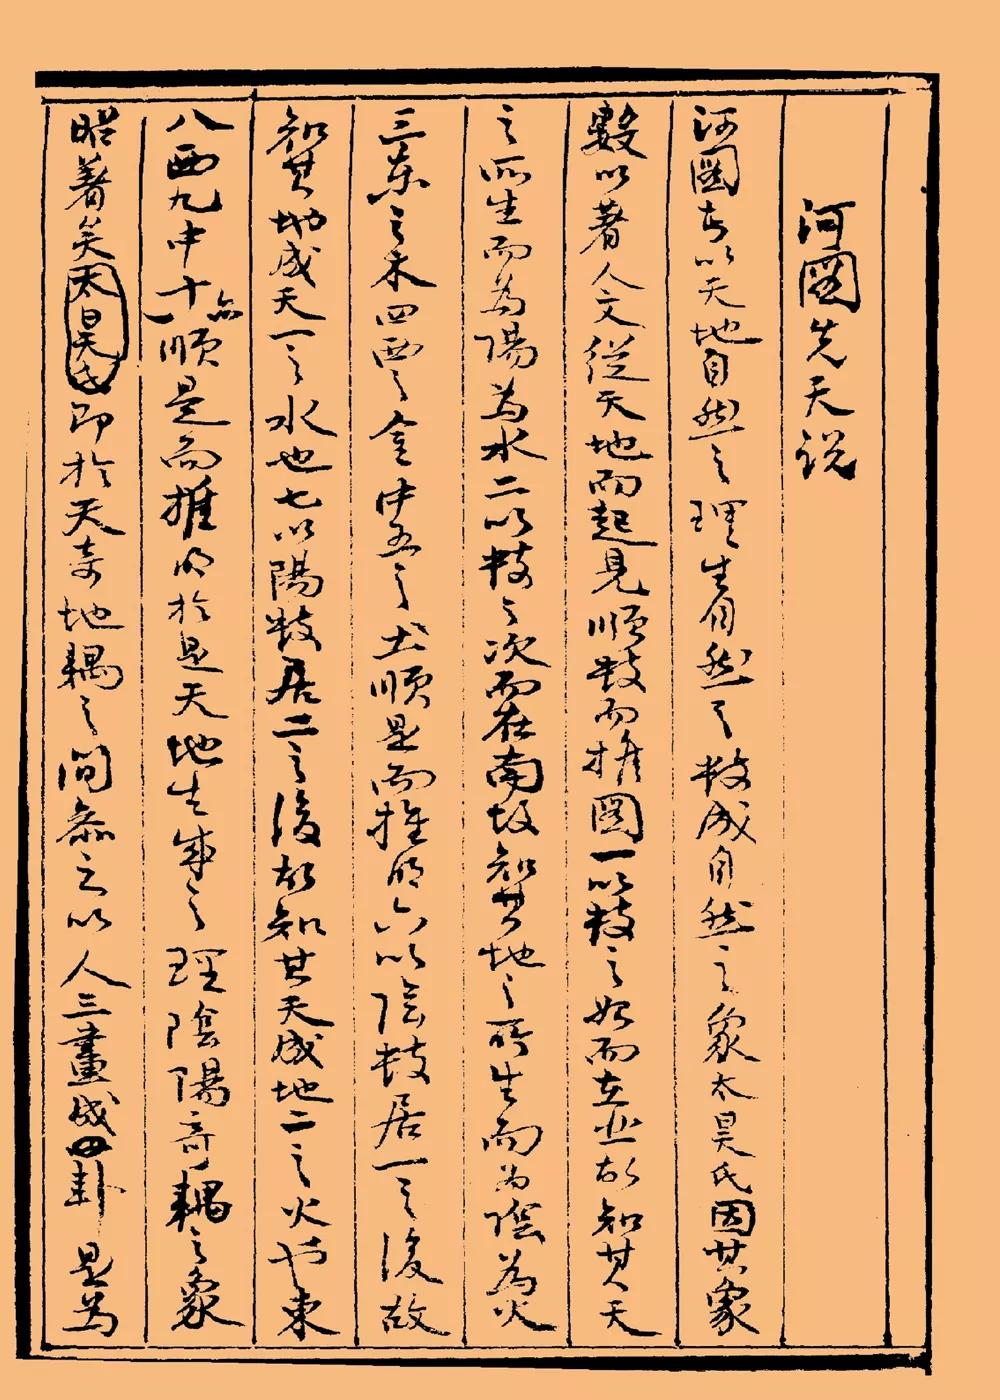 河圖先天説
河圖者以天地自然之理生自然之數成自然之象太昊氏因其象
數以著人文從天地而起見順數而推圖一以數之始而在北故知其天
之所生而為陽為水二以數之次而在南故知其地之所生而為陰為火
三東之木四西之金中五之土順是而推明六以陰數居一之後故
知其地成天一之水也七以陽數居二之後故知其天成地二之火也東
八西九中十亦順是而推明於是天地生成之理陰陽奇耦之象
昭著矣太昊氏即於天奇地耦之間參之以人三畫成卦是為